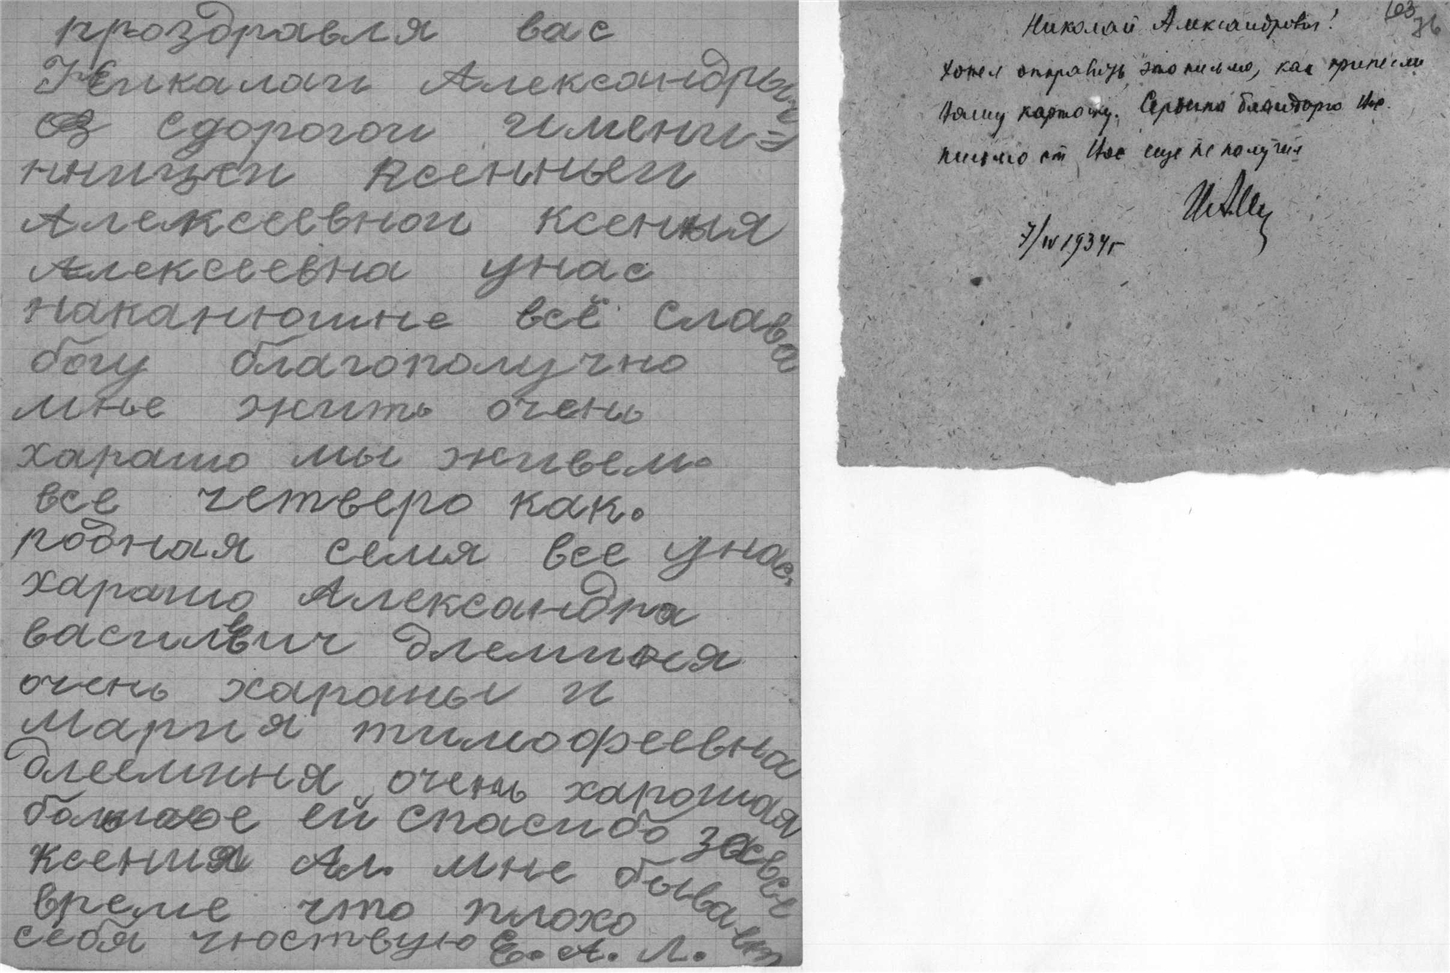 проздравля вас
Александры
сдорогой имени=
нницей ксенньей
Алексеевной ксения
Алексеевна унас
наканюшне всё слава
богу благополучно
мнье жить очень
харашо мы живем.
все четверо как.
родная семя все унас.
харашо Александра
василвич длеминя
очень харошы и
мария тимофеевна
длееминя очень харошая
большое ей спасибо завсе
ксения Ал. мне бывает
време что плохо
себя чюствую Е. А. Л.
103
76
Николай Александрович!
Хотел отправить это письмо, как принесли
Вашу карточку. Сердечно благодарю Вас.
письмо от Вас еще не получил
7/IV 1934г